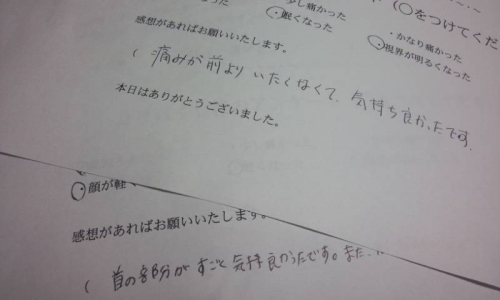 少し痛かった
(○をつけてくだ
・眠くなった
・かなり痛かった
・視界が明るくなった
感想があればお願いいたします。
( 痛みが前よりいたくなくて、気持ち良かったです
本日はありがとうございました。
・顔が軽
感想があればお願いいたします。
( 首の部分がすごく気持良かったです。また